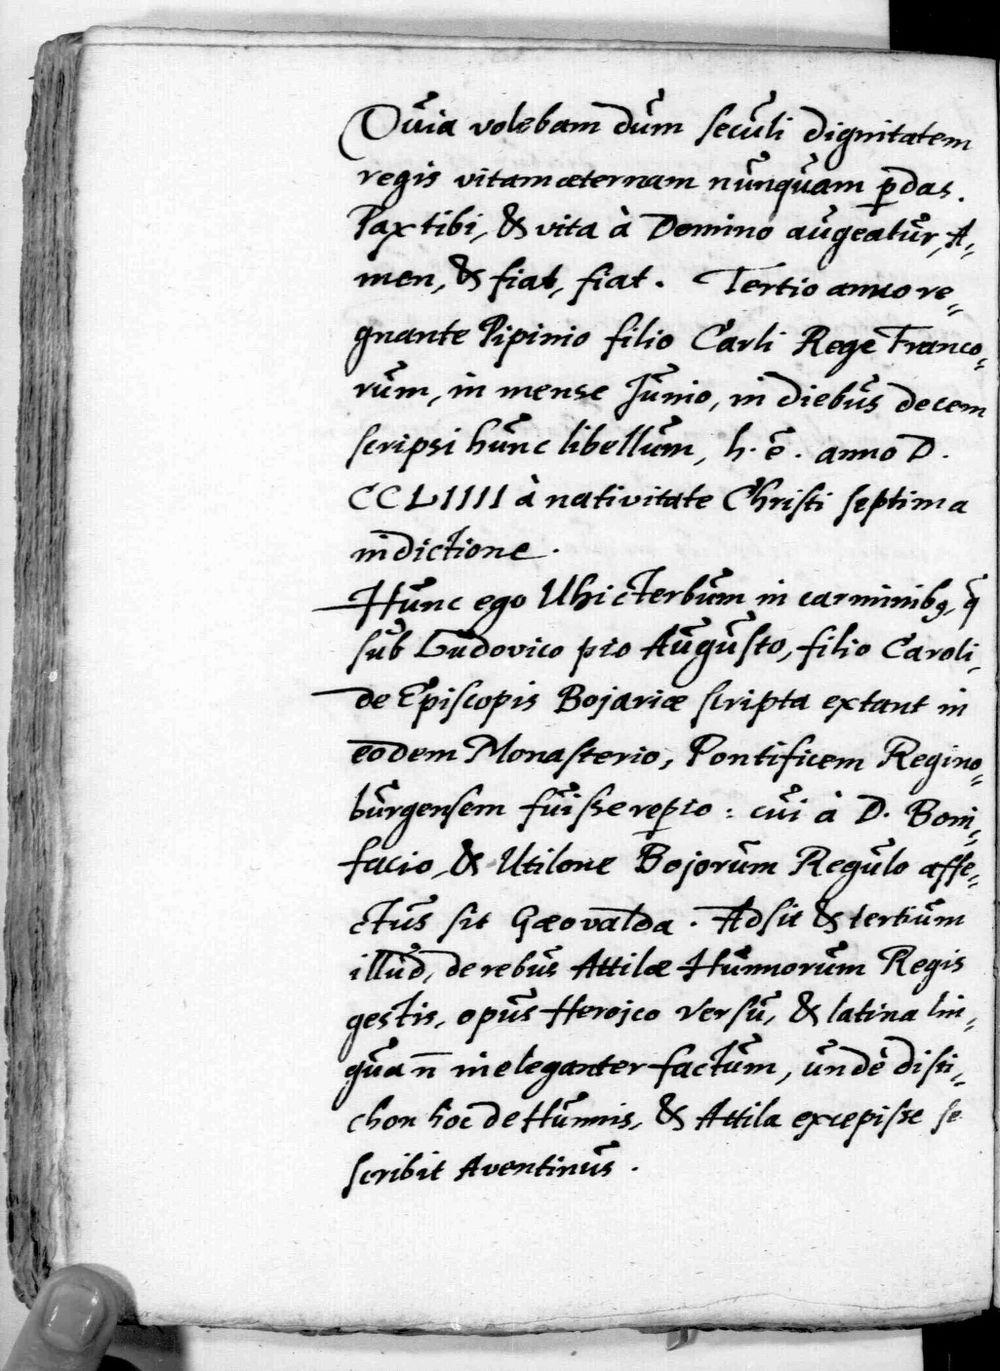 Quia volebam dum seculi dignitatem
regis vitam æternam nunquam p̱das.
Pax tibi, & vita à Domino augeatur, A-
men, & fiat, fiat. Tertio anno re-
gnante Pipinio filio Carli Rege Franco-
rum, in mense Junio, in diebus decem
scripsi hunc libellum, h. ē. anno D.
CCLIIII à nativitate Christi septima
indictione.
Hunc ego Uhicterbum in carminibꝫ, q̄
sub Ludovico pio Augusto, filio Caroli,
de Episcopis Bojariæ scripta extant in
eodem Monasterio, Pontificem Regino-
burgensem fuisse rep̱io: cui à D. Boni-
facio, & Utilone Bojorum Regulo affe-
ctus sit Gæovalda. Adsit & tertium
illud, de rebus Attilæ Hunnorum Regis
gestis, opus Herojco versu, & latina lin-
gua n̄ ineleganter factum, unde disti-
chon hoc de Hunnis, & Attila excepisse se
scribit Aventinus.